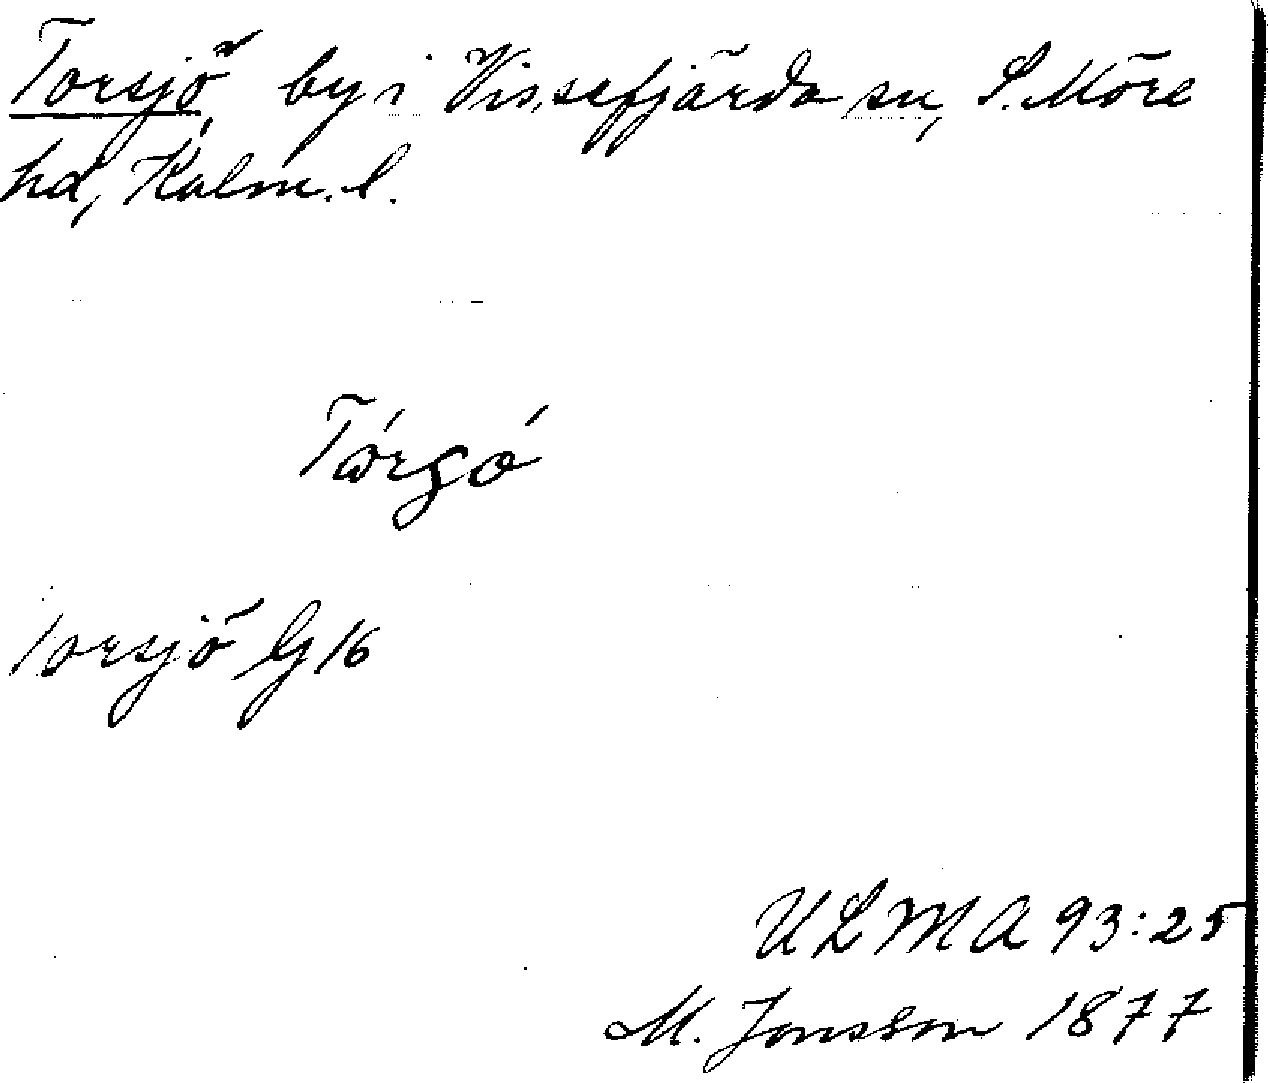 Torsjö by i Vissefjärda sn, S. Möre
hd, Kalm. l.
Torsjö G 16
ULMA 93:25
M. Jonsson 1877